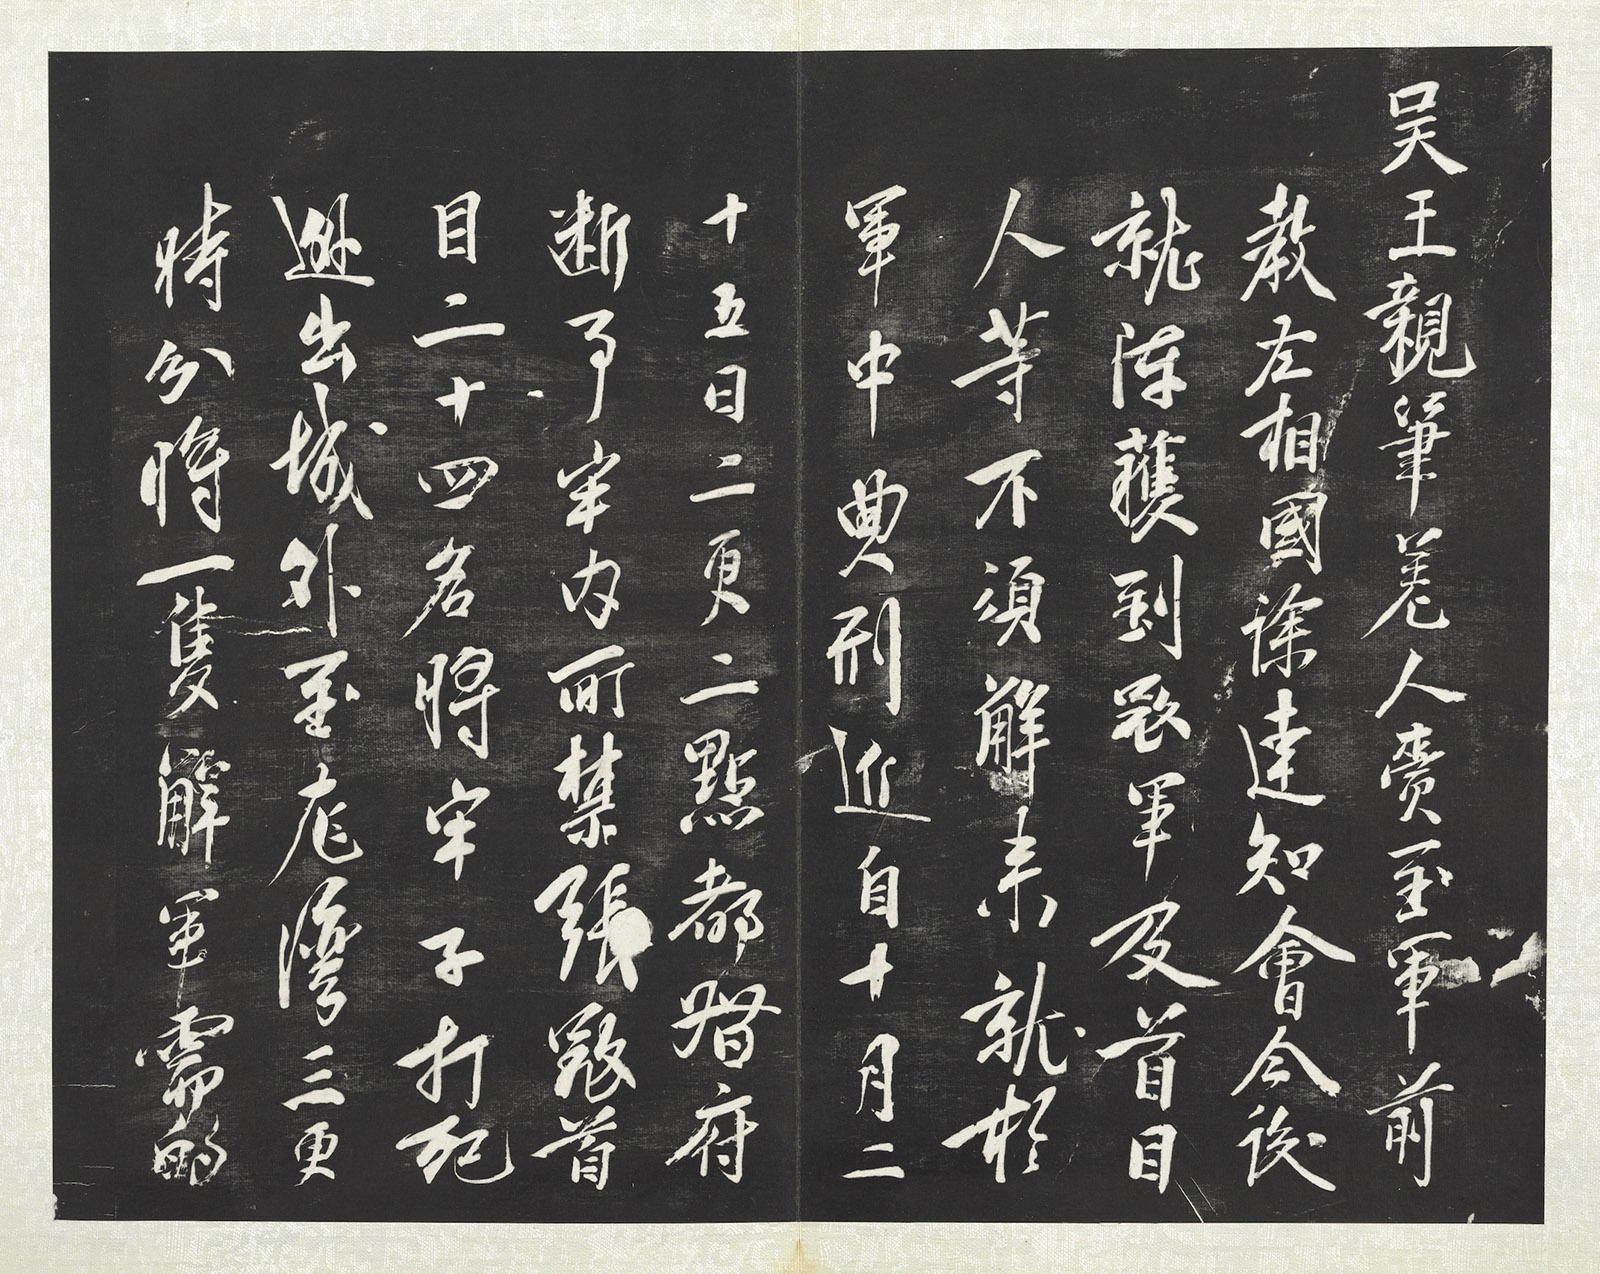 吴王親筆差人賫至軍前
教左相國徐達知會今後
就陣獲到寇軍及首目
人等不須解来就於
軍中典刑近自十月二
十五日二更二點都督府
断事牢内所禁張寇首
目二十四名將牢子打死
逃出城外至龙灣三更
時分將一隻解軍需的